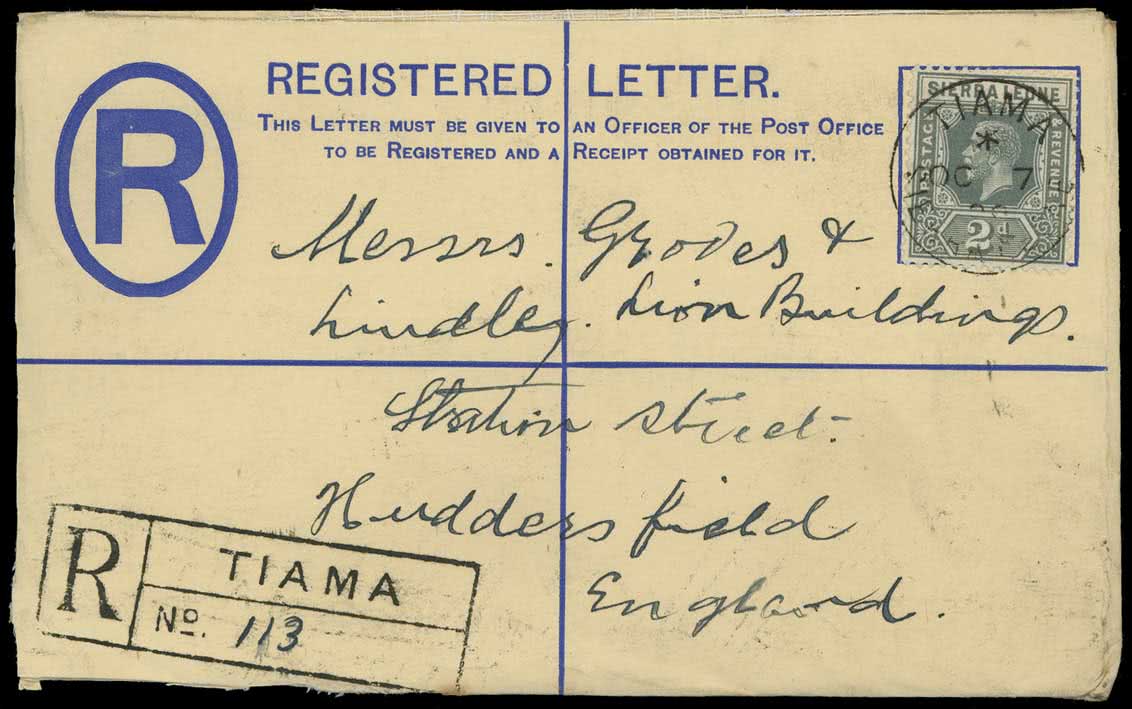 R
REGISTERED LETTER.
THIS LETTER MUST BE GIVEN TO AN OFFICER OF THE POST OFFICE
TO BE REGISTERED AND A RECEIPT OBTAINED FOR IT.
SIERRA LEONE
POSTAGE
& REVENUE
2d
TIAMA
OC 7
Messrs. Groves &
Lindley. Lion Buildings.
Station Street.
Huddersfield
England.
R
TIAMA
No. 113